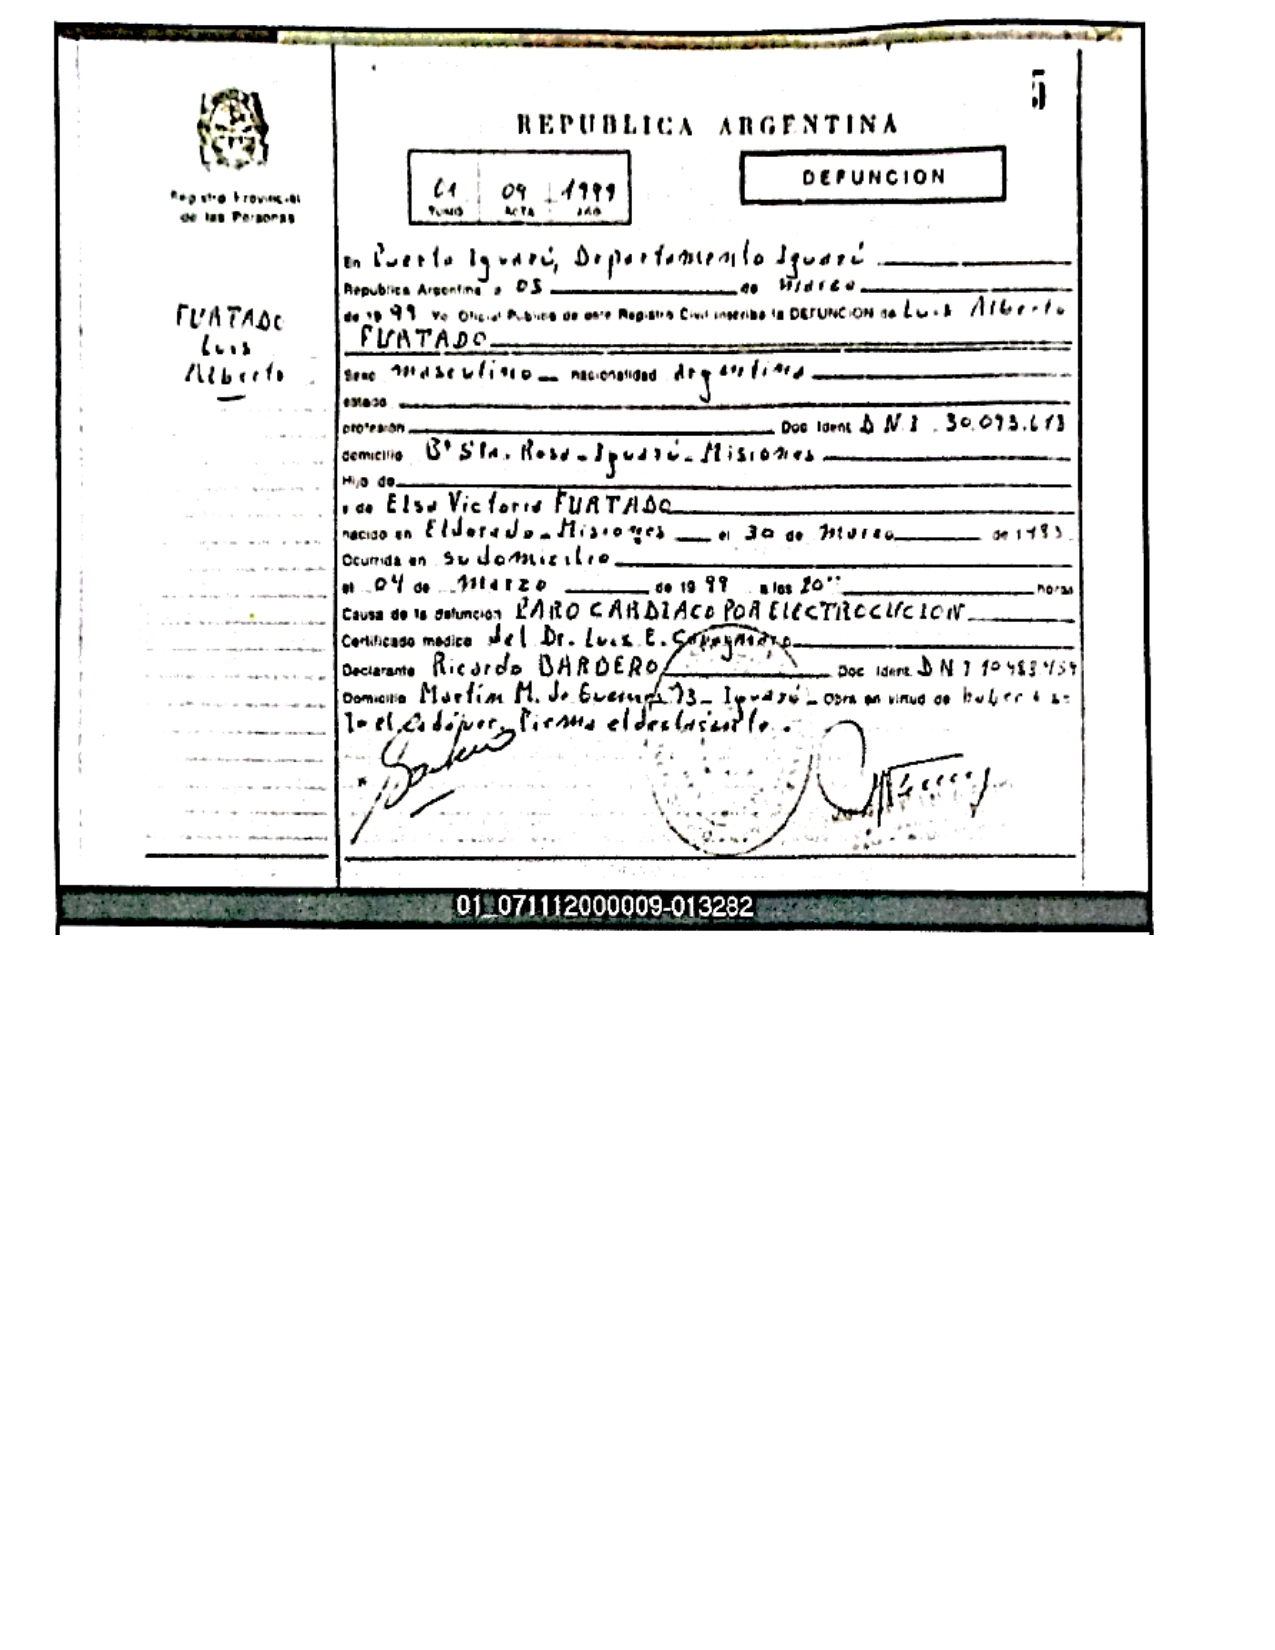 5
REPUBLICA ARGENTINA
DEFUNCION
09 1999
TOMO ACTA AÑO
Registro Provincial
de las Personas
FURTADO
Luis
Alberto
En Puerto Iguazú, Departamento Iguazú
Republica Argentina a 05 de Marzo
de 19 99 Yo Oficial Publico de este Registro Civil inscribo la DEFUNCION de Luis Alberto
FURTADO
Sexo masculino nacionalidad Argentina
estado
profesión Doc Ident D N I 30.073.613
domicilio Bº Sta. Rosa - Iguazú - Misiones
Hijo de
y de Elsa Victoria FURTADO
nacido en Eldorado - Misiones el 30 de Marzo de 1983
Ocurrida en su domicilio
el 04 de Marzo de 19 99 a las 20 horas
Causa de la defunción PARO CARDIACO POR ELECTROCUCION
Certificado médico del Dr. Luis E.
Declarante Ricardo BARDERO Doc Ident. D N I
Domicilio Martín M. de Guemes 73 - Iguazú - Obra en virtud de haber
el Cadáver. Firma el declarante.
01_071112000009-013282